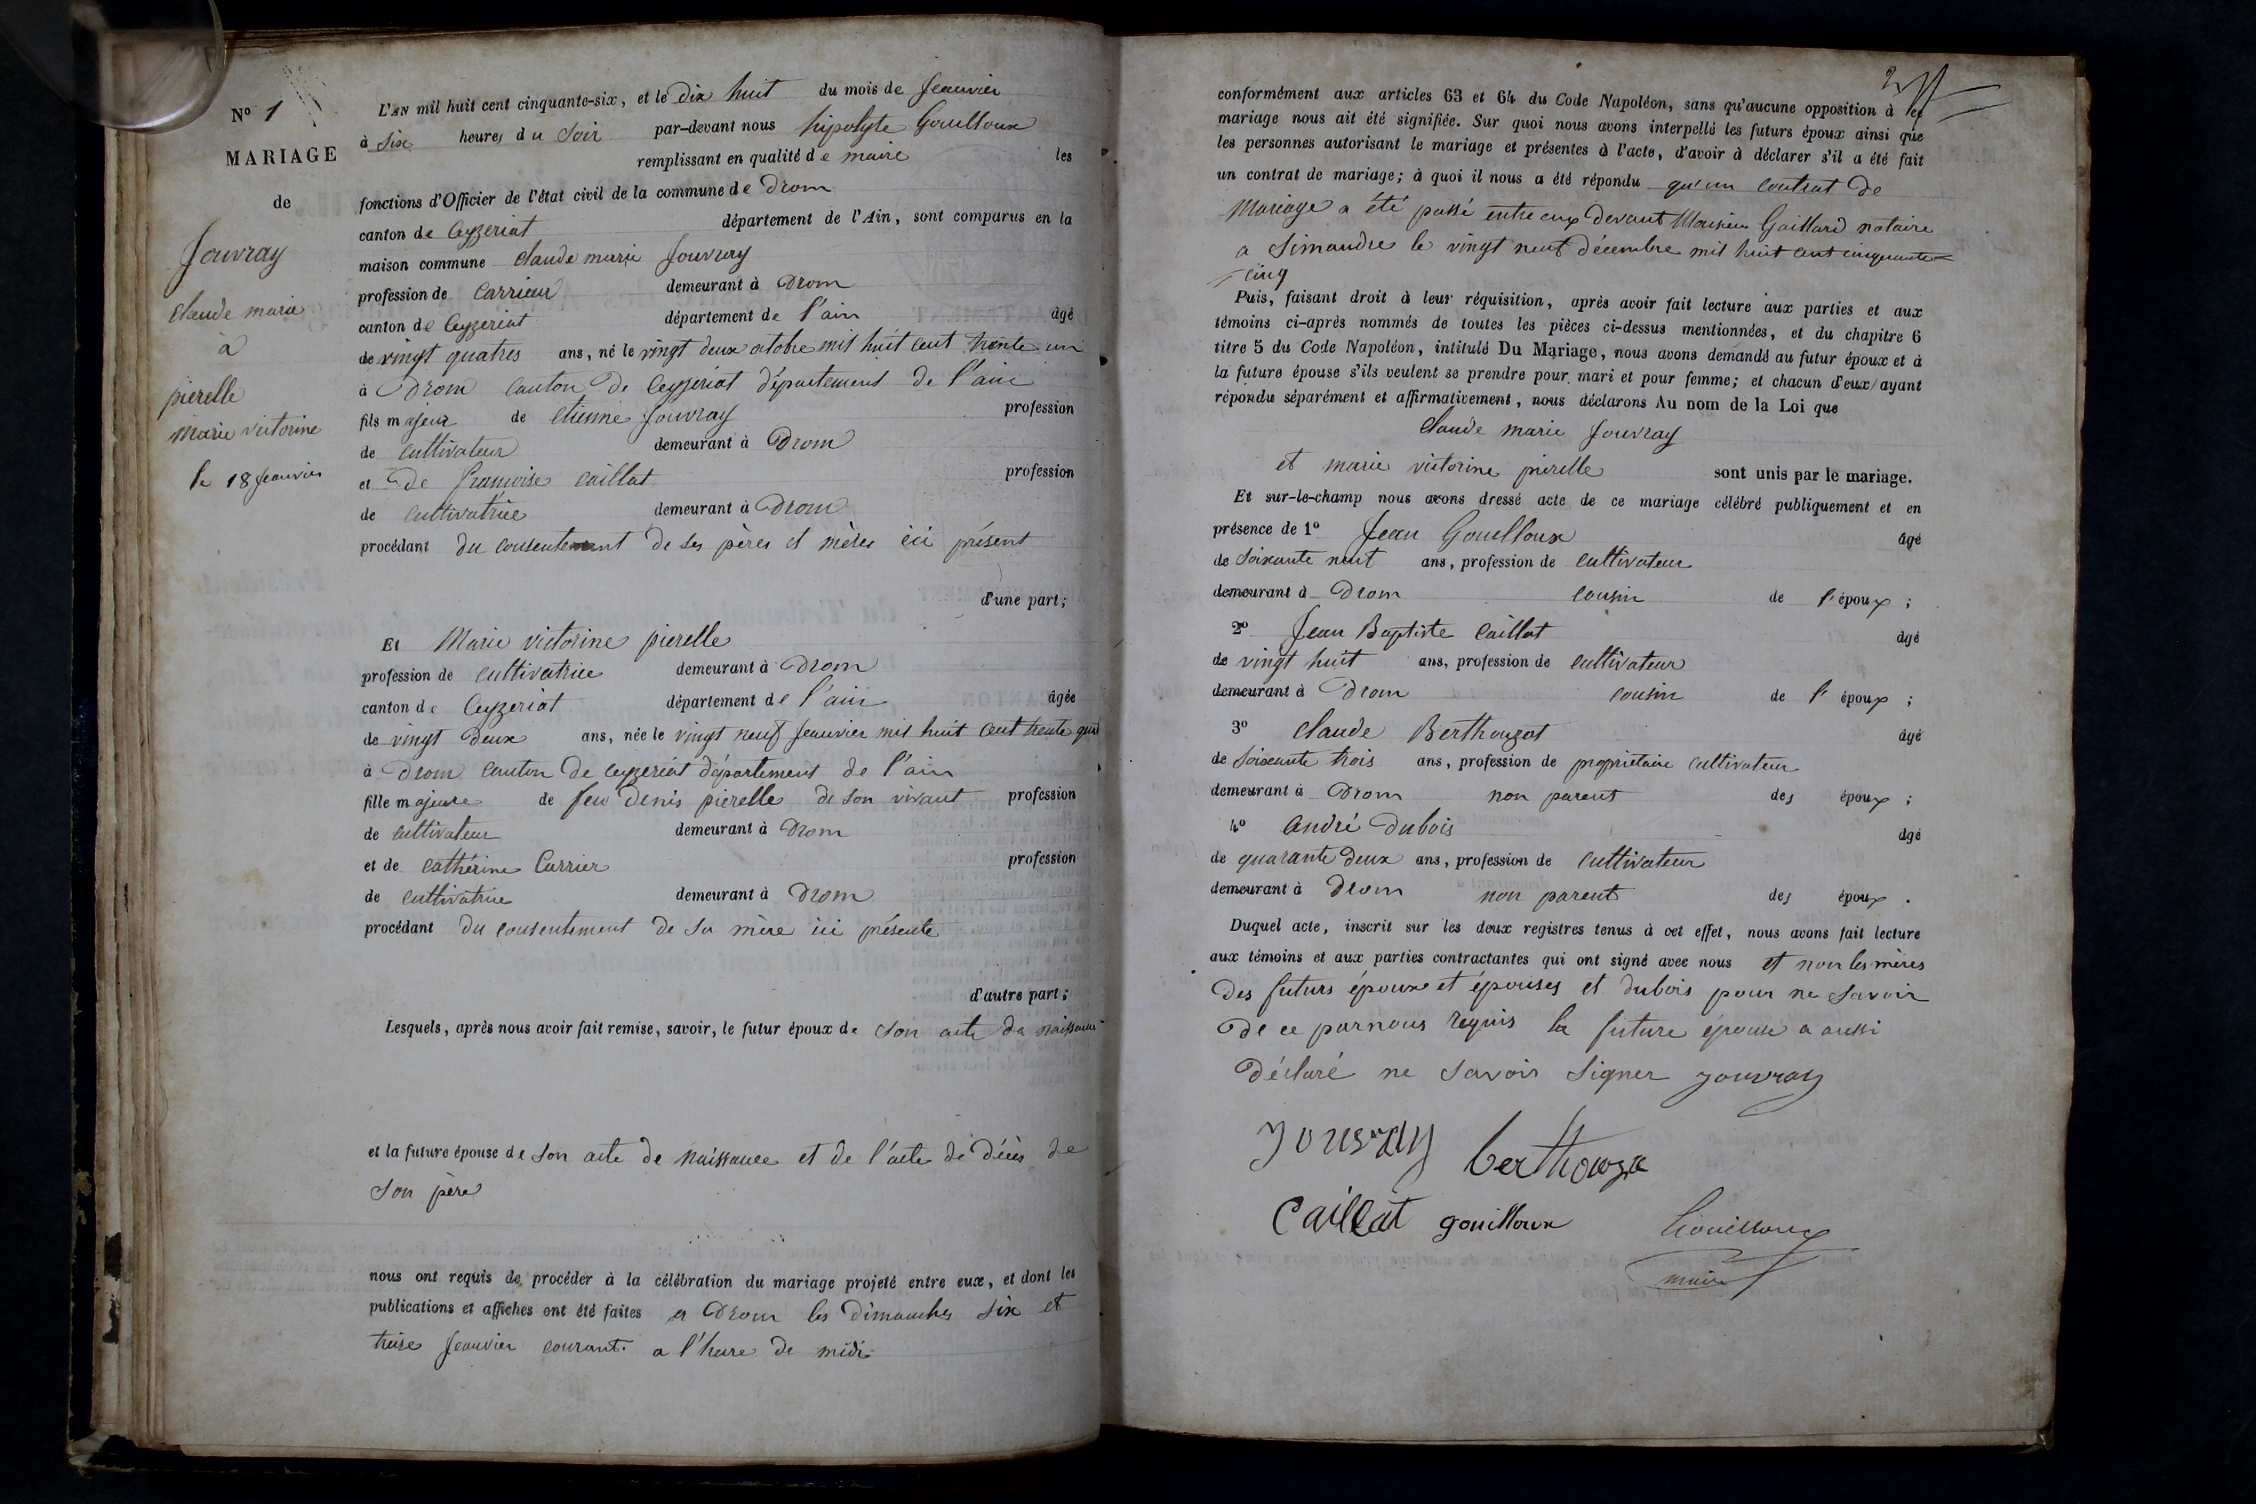 N° 1
MARIAGE
de
Jouvray
claude marie
à
pierelle
Marie victorine
le 18 Jeanvier
L'AN mil huit cent cinquante-six, et le dix huit du mois de Jeanvier
à six heures du soir par-devant nous hipolyte Gouilloux
remplissant en qualité de maire les
fonctions d'Officier de l'état civil de la commune de Drom
canton de Ceyzeriat département de l'Ain, sont comparus en la
maison commune claude marie Jouvray
profession de Carrieur demeurant à Drom
canton de Ceyzeriat département de l'ain âgé
de vingt quatres ans, né le vingt deux octobre mil huit cent trente un
à Drom canton de Ceyzeriat département de l'ain
fils majeur de Etienne Jouvray profession
de cultivateur demeurant à Drom
et de françoise caillat profession
de cultivatrice demeurant à Drom
procédant du consentement de ses pères et mères ici présent
d'une part;
Et Marie victorine pierelle
profession de cultivatrice demeurant à Drom
canton de Ceyzeriat département de l'ain âgée
de vingt deux ans, née le vingt neuf Jeanvier mil huit cent trente
à Drom canton de Ceyzeriat département de l'ain
fille majeure de feu Denis pierelle de son vivant profession
de cultivateur demeurant à Drom
et de cathérine Carrier profession
de cultivatrice demeurant à Drom
procédant du consentement de sa mère ici présente
d'autre part;
Lesquels, après nous avoir fait remise, savoir, le futur époux de son acte de naissance
et la future épouse de son acte de naissance et de l'acte de décès de
son père
nous ont requis de procéder à la célébration du mariage projeté entre eux, et dont les
publications et affiches ont été faites a Drom les dimanches six et
treise Jeanvier courant a l'heure de midi
2
conformément aux articles 63 et 64 du Code Napoléon, sans qu'aucune opposition à ce
mariage nous ait été signifiée. Sur quoi nous avons interpellé les futurs époux ainsi que
les personnes autorisant le mariage et présentes à l'acte, d'avoir à déclarer s'il a été fait
un contrat de mariage; à quoi il nous a été répondu qu'un contrat de
Mariage a été passé entre eux devant Monsieur Gaillard notaire
a Simandre le vingt neuf décembre mil huit cent cinquante
cinq
Puis, faisant droit à leur réquisition, après avoir fait lecture aux parties et aux
témoins ci-après nommés de toutes les pièces ci-dessus mentionnées, et du chapitre 6
titre 5 du Code Napoléon, intitulé Du Mariage, nous avons demandé au futur époux et à
la future épouse s'ils veulent se prendre pour mari et pour femme; et chacun d'eux ayant
répondu séparément et affirmativement, nous déclarons Au nom de la Loi que
Claude marie Jouvray
et marie victorine pierelle sont unis par le mariage.
Et sur-le-champ nous avons dressé acte de ce mariage célébré publiquement et en
présence de 1° Jean Gouilloux âgé
de soixante neuf ans, profession de cultivateur
demeurant à Drom cousin de l'époux ;
2° Jean Baptiste Caillat âgé
de vingt huit ans, profession de cultivateur
demeurant à Drom cousin de l'époux ;
3° Claude Berthouzat âgé
de soixante trois ans, profession de propriétaire cultivateur
demeurant à Drom non parent des époux ;
4° André Dubois âgé
de quarante deux ans, profession de cultivateur
demeurant à Drom non parent des époux .
Duquel acte, inscrit sur les deux registres tenus à cet effet, nous avons fait lecture
aux témoins et aux parties contractantes qui ont signé avec nous et non les mères
des futurs époux et épouses et dubois pour ne savoir
de ce par nous requis la future épouse a aussi
déclaré ne savoir signer Jouvray
Jouvray berthouza
Caillat gouilloux Gouilloux
maire